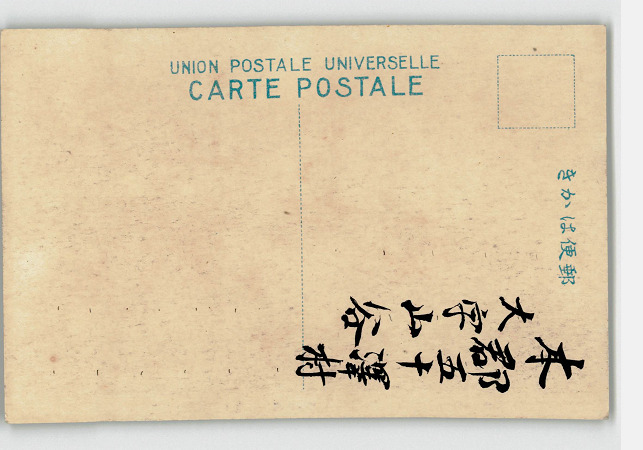 UNION POSTALE UNIVERSELLE
CARTE POSTALE
きかは便郵
本郡五十澤村
大字山谷